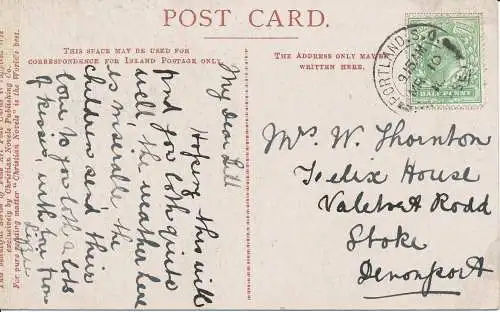 POST CARD.
THIS SPACE MAY BE USED FOR
CORRESPONDENCE FOR INLAND POSTAGE ONLY.
THE ADDRESS ONLY MAY BE
WRITTEN HERE.
My dear Lill
Hoping this will
find you both quite
well the weather here
is miserable, the
children send their
love to you both & lots
of kisses, with love from
Mrs W. Thornton
Felix House
Valetort Rodd
Stoke
Devonport
PORTLAND S.O
9.15 AM
10
HALF PENNY
exclusively by Christian Novels Publishing Co.
For pure reading matter "Christian Novels" is the World's best.